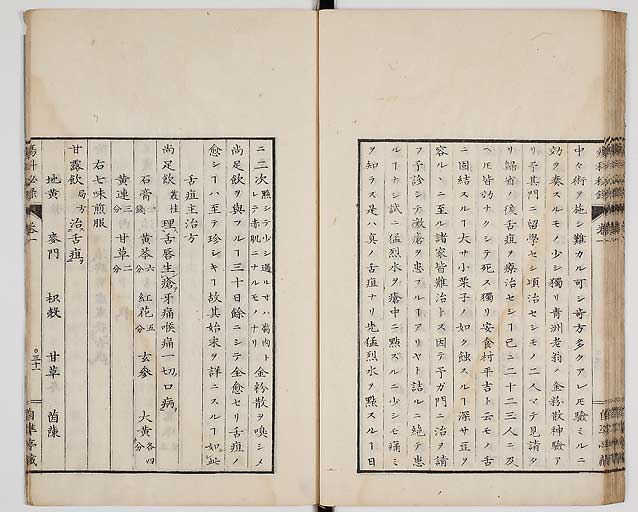 中々術ヲ施シ難カル可シ奇方多クアレ𪜈驗ミルニ
効ヲ奏スルモノ少シ獨リ青洲老翁ノ金粉散神驗ア
リ予其門ニ留學セシ項治セシモノ二人マテ見請タ
リ歸省ノ後舌疽ヲ療治セシヿ已ニ二十二三人ニ及
ヘ𪜈皆効ナクシテ死ス獨リ安食村平吉ト云モノ舌
ニ固結スルヿ大サ小栗子ノ如ク蝕スルヿ深サ豆ヲ
容ルヽニ至ル諸家皆難治トス因テ予ガ門ニ治ヲ請
フ予診シテ黴瘡ヲ患フルヿアリヤト詰ルニ絶テ患
ルヿナシ試ニ猛烈水ヲ瘡中ニ點ズルニ少シモ痛ミ
ヲ知ラス是ハ真ノ舌疽ナリ先猛烈水ヲ點スルヿ日
ニ二次
尚足飲ヲ與フルヿ三十日餘ニシテ全愈セリ舌疽ノ
愈シヿハ至テ珍シキヿ故其始末ヲ詳ニスルヿ如此
舌疽主治方
尚足飲 理舌唇生瘡牙痛喉痛一切口病
石膏 黄芩 六分 紅花 五分 玄參 大黄 各四分
黄連 三分 甘草 二分
右七味煎服
甘露飲 局方 治舌疽
地黄 麥門 枳殻 甘草 茵蔯
卷一
三十一